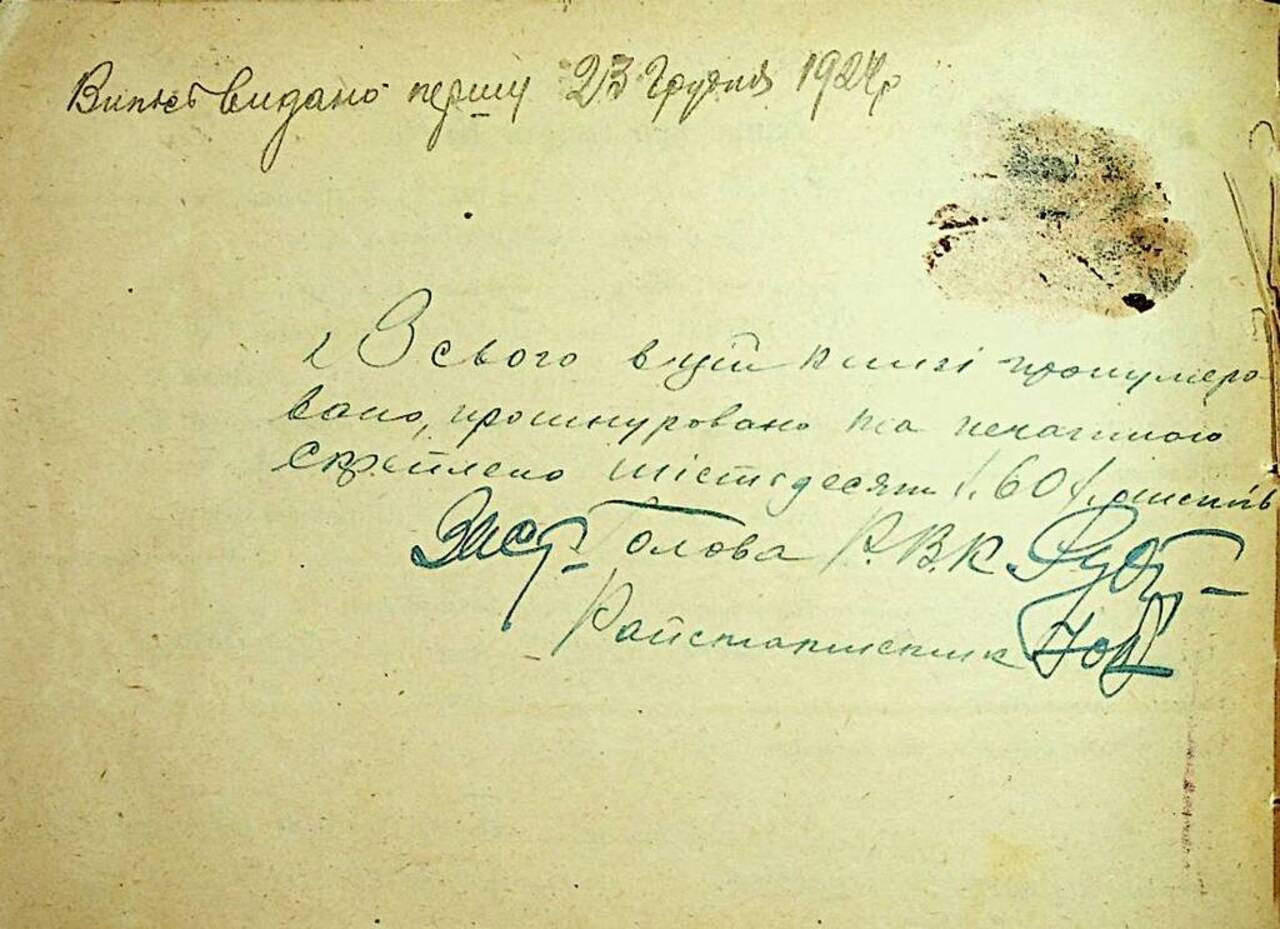 Випись видано першу 23 Грудня 1924р
Всього в цій книзі пронумеро
вано, прошнуровано та печаткою
скріплено шістьдесят /.60/. листів
Заст. Голова Р.В.К
Райстатистик